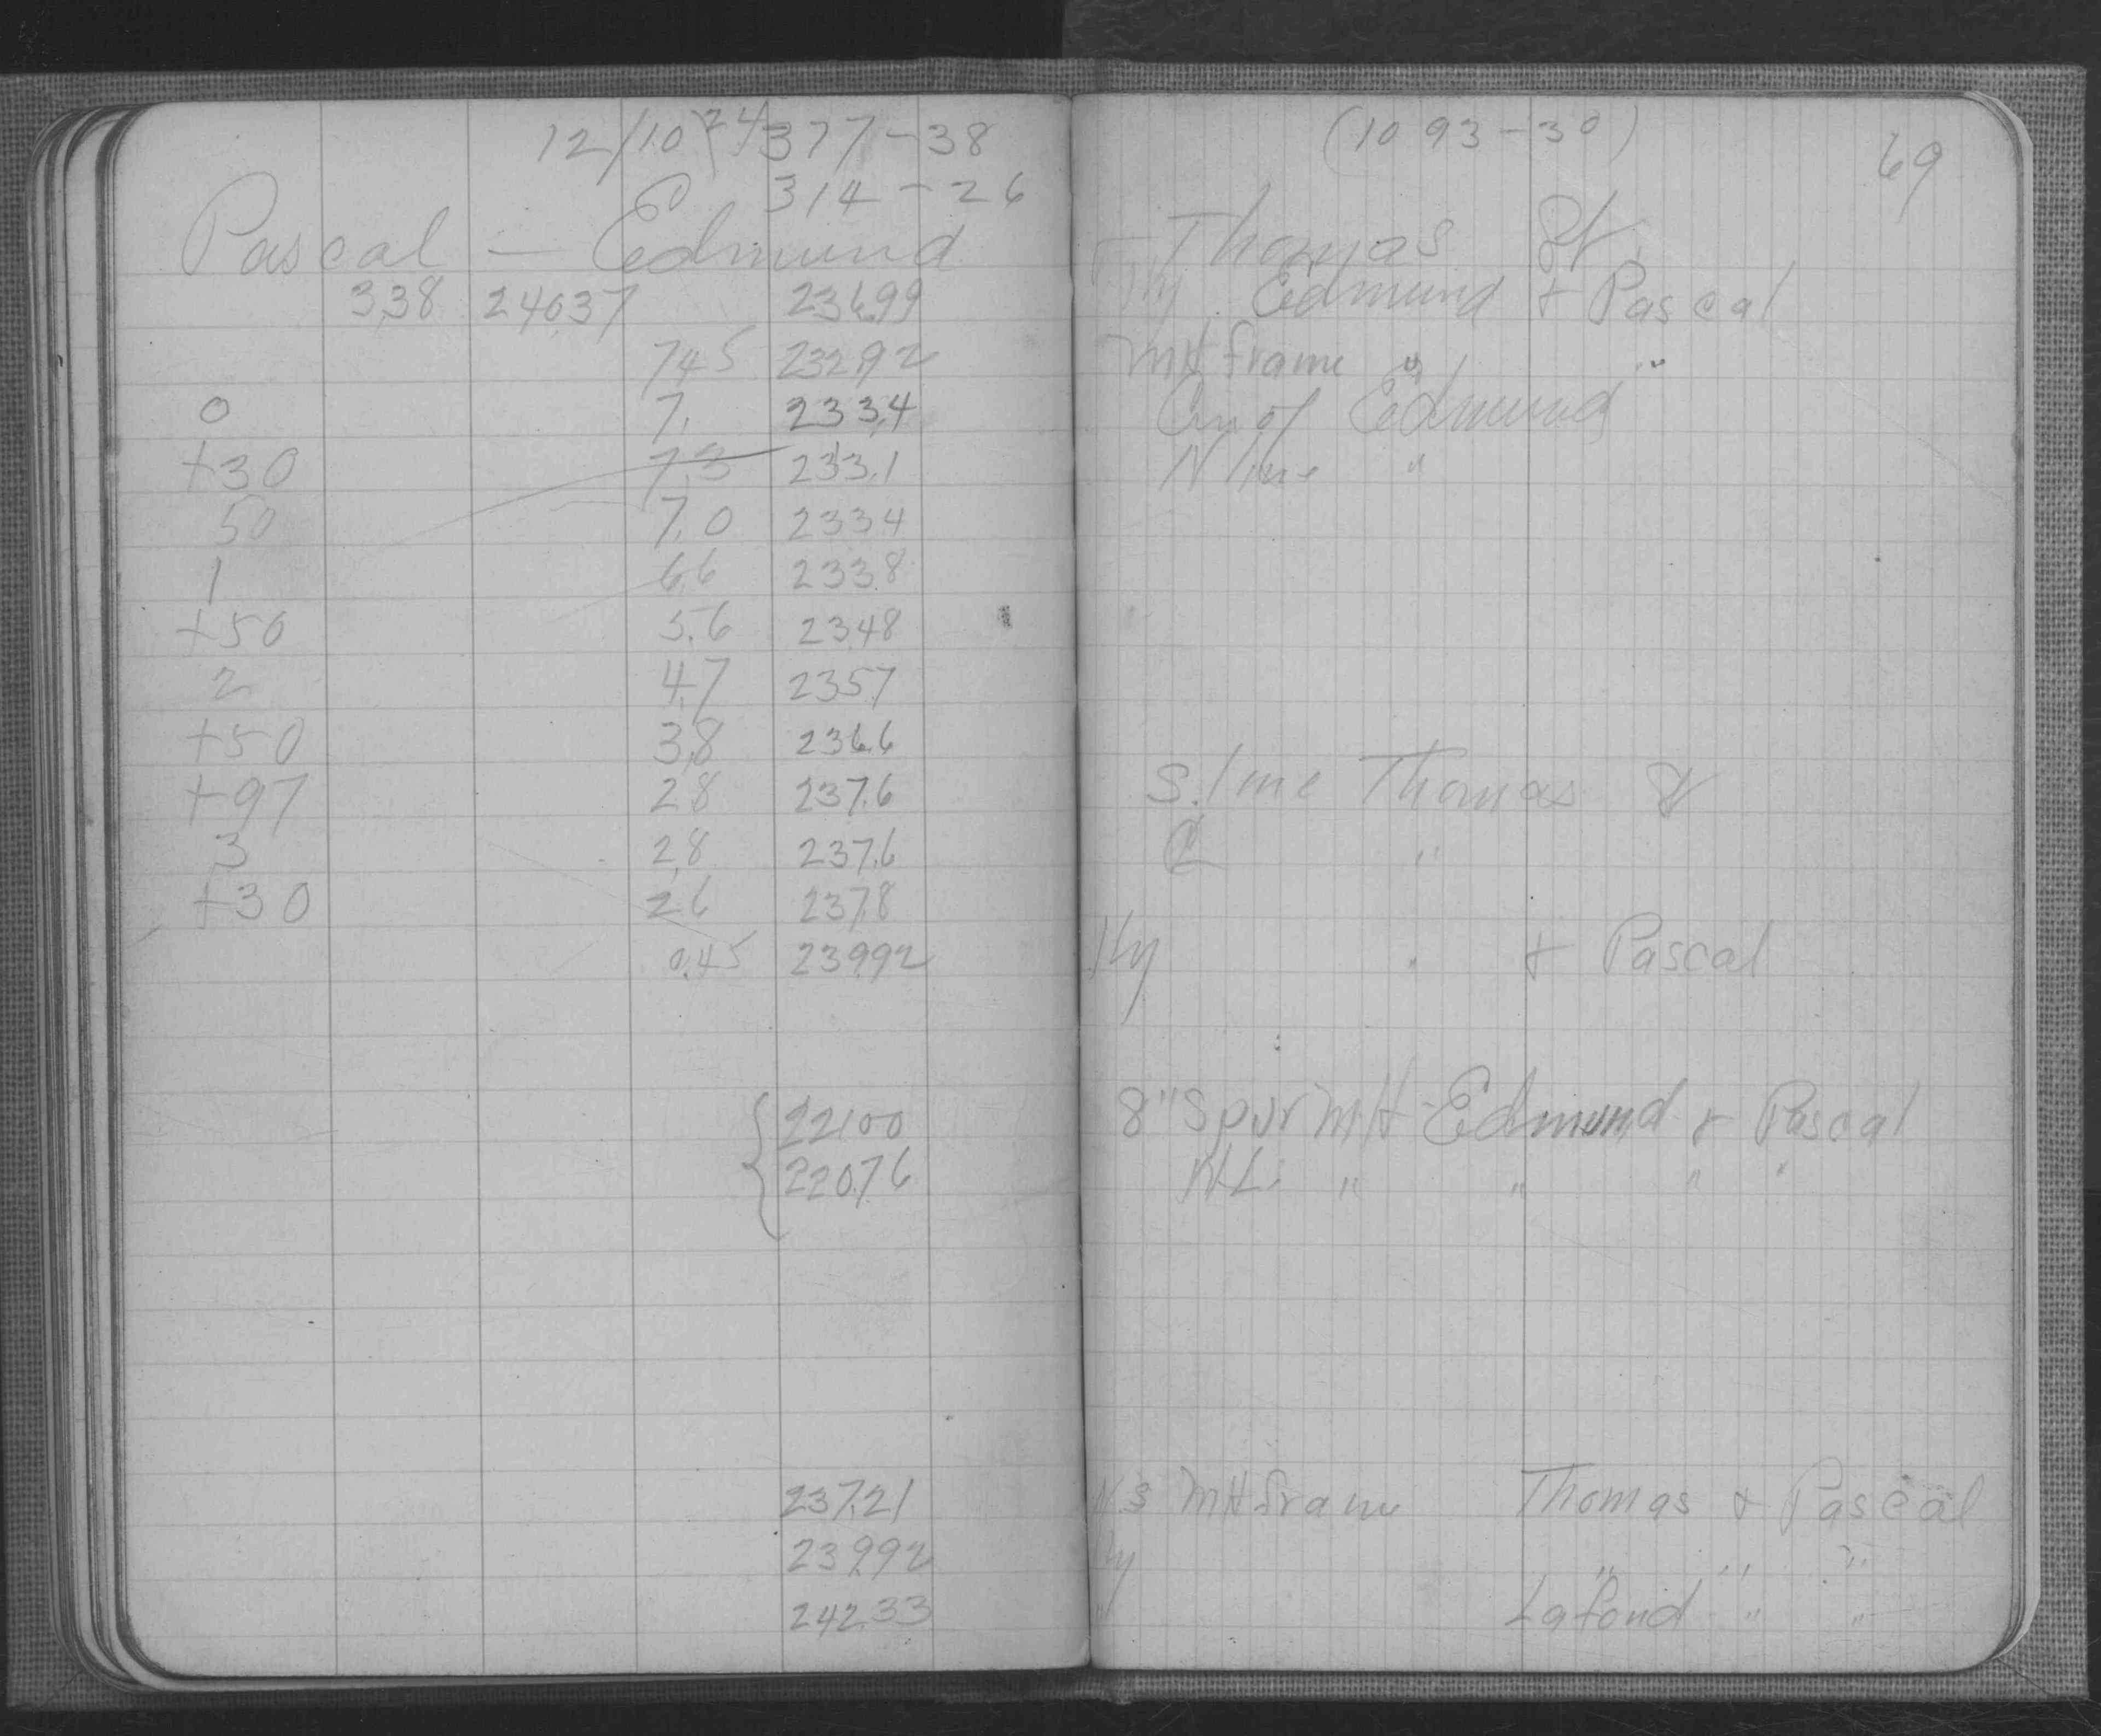 12/10/24 377-38 (1093-30) 69
314-26
Pascal — Edmund — Thomas St.
3.38 240.37 236.99 Hy Edmund & Pascal
7.45 232.92 MH frame " "
0 7. 233.4 Cen of Edmund
+30 7.3 233.1 N line "
50 7.0 233.4
1 6.6 233.8
+50 5.6 234.8
2 4.7 235.7
+50 3.8 236.6
+97 2.8 237.6 S. line Thomas St
3 2.8 237.6 ℄ "
+30 2.6 237.8
0.45 239.92 Hy " & Pascal
221.00 8" Spur MH - Edmund & Pascal
220.76 " " " "
237.21 N.S MH frame Thomas & Pascal
239.92 Hy " " "
242.33 " Lafond " "